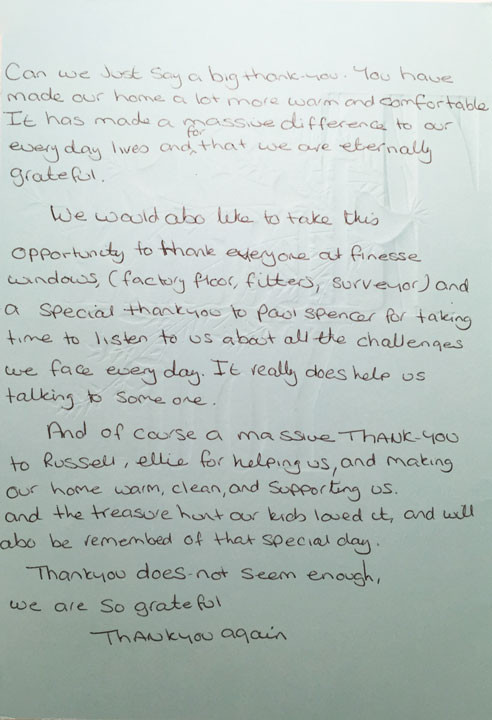 Can we Just say a big thank-you. You have
made our home a lot more warm and comfortable
It has made a massive difference to our
every day lives and for that we are eternally
grateful.
We would also like to take this
opportunity to thank everyone at finesse
windows, (factory floor, fitters, surveyor) and
a special thankyou to Paul Spencer for taking
time to listen to us about all the challenges
we face every day. It really does help us
talking to some one.
And of course a massive THANK-YOU
to Russell, ellie for helping us, and making
our home warm, clean, and supporting us.
and the treasure hunt our kids loved it, and will
also be remembered of that special day.
Thankyou does-not seem enough,
we are so grateful
THANKYOU again